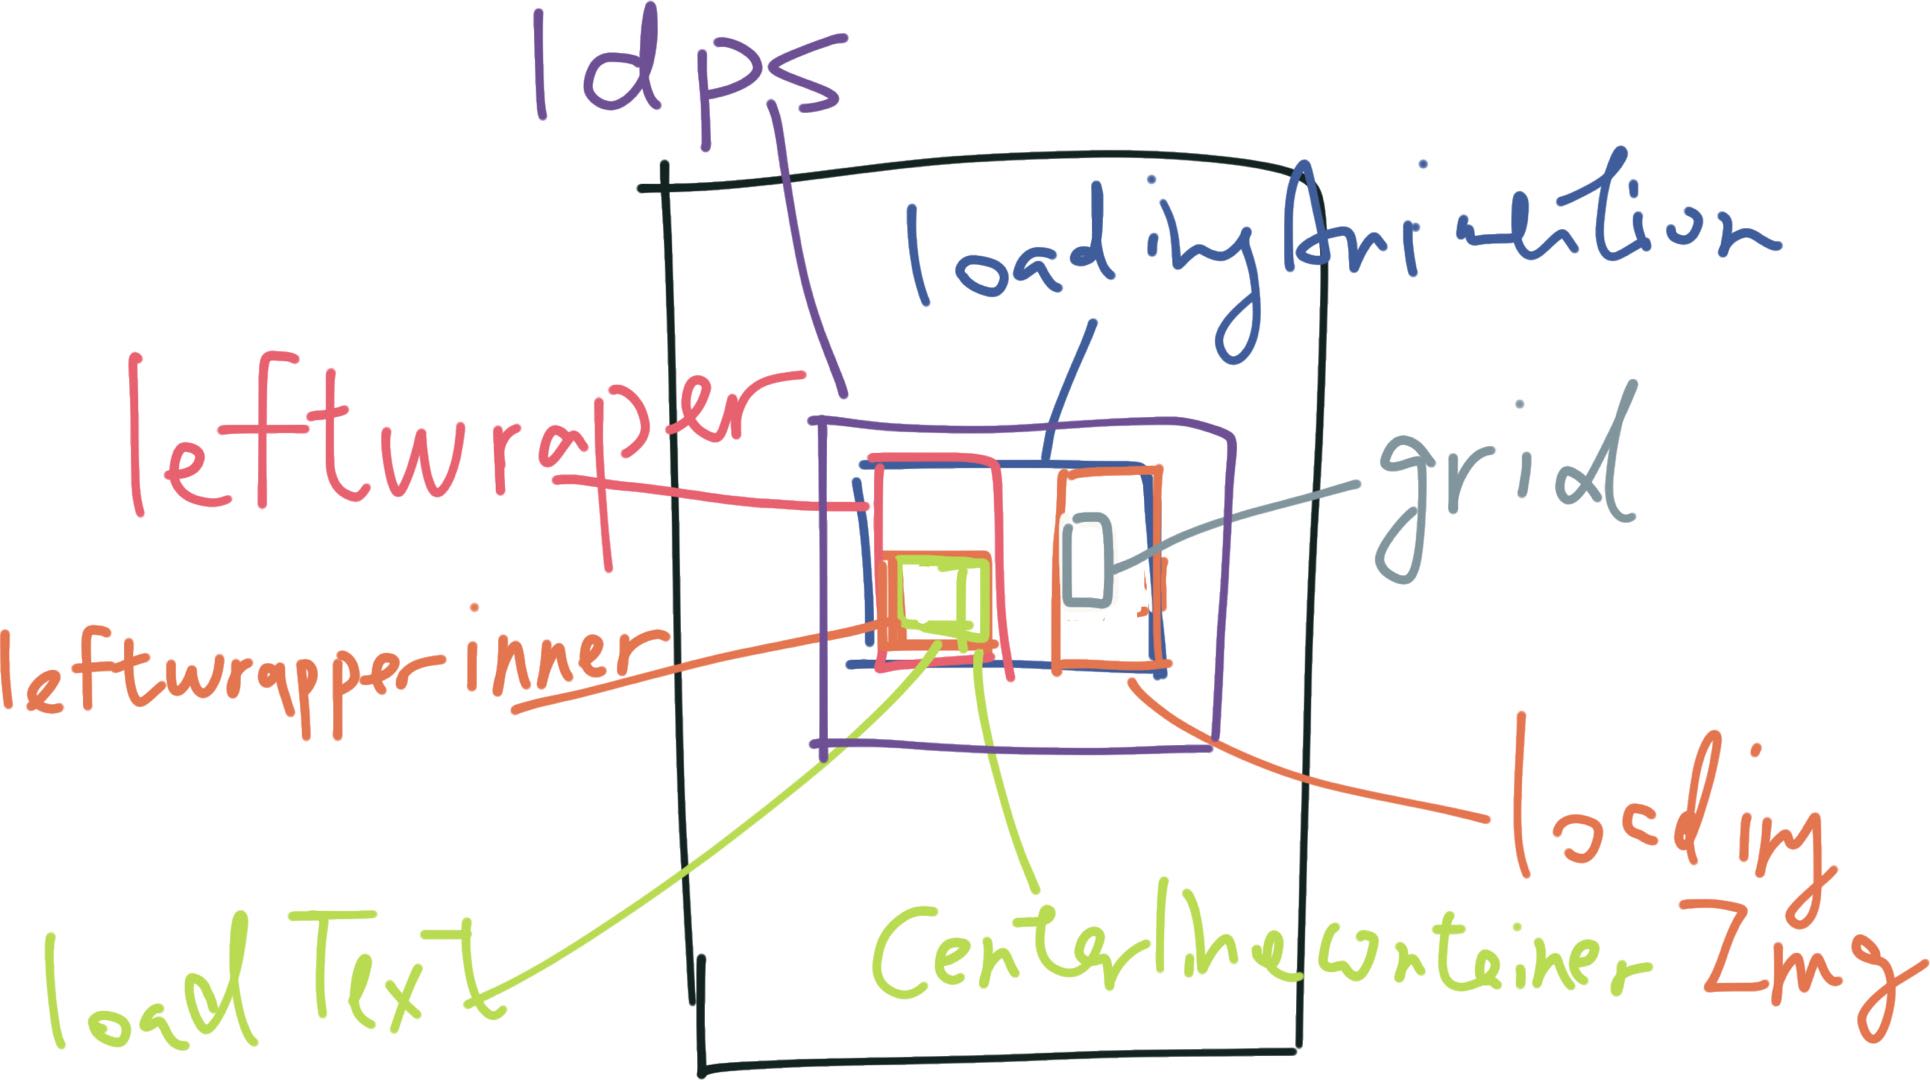 ldps
loadingAnimation
leftwraper
grid
leftwrapperinner
loading
Img
loadText
Centerlinecontainer